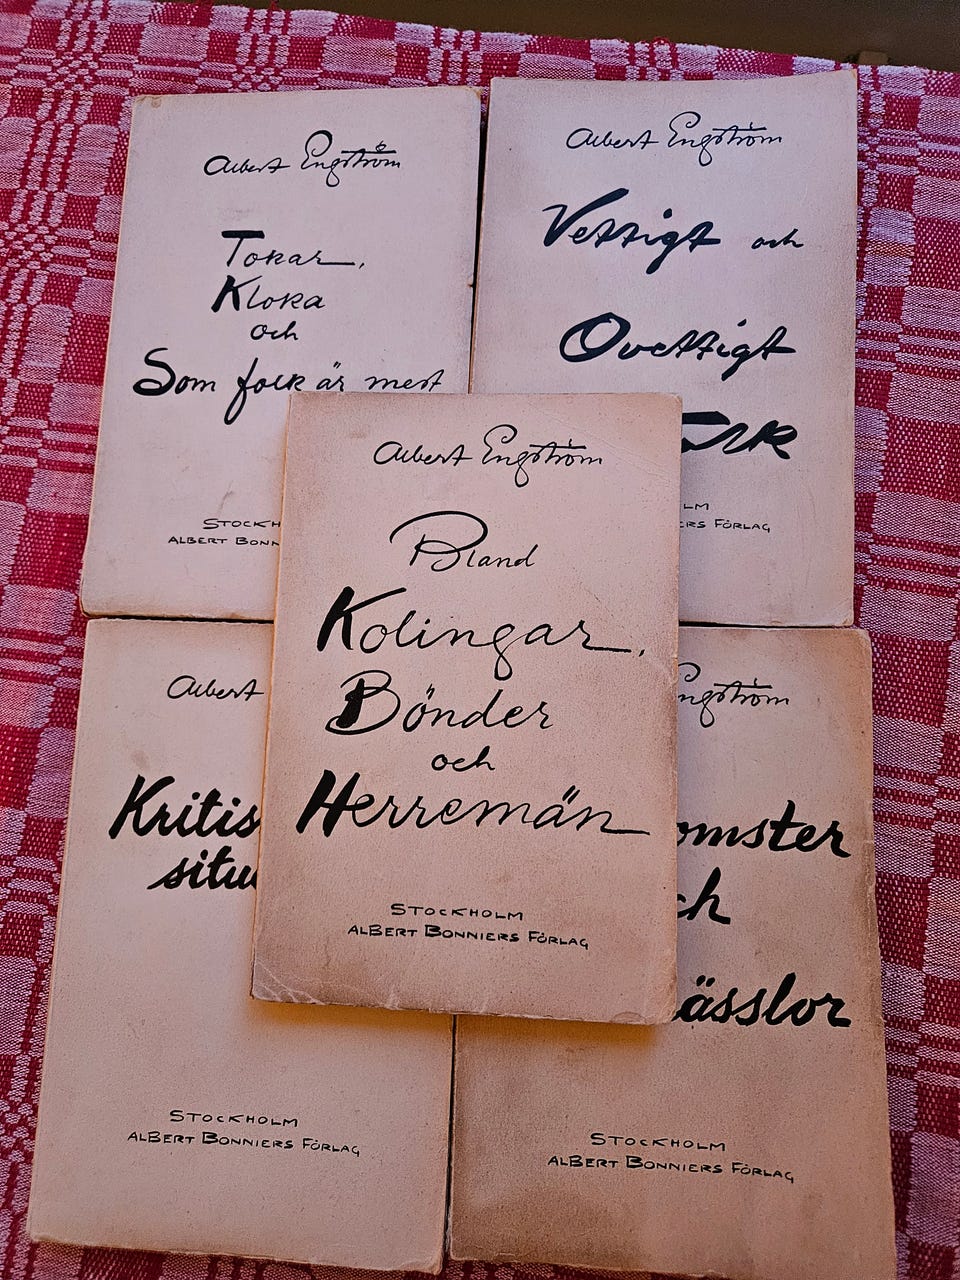 Albert Engström
Tokar,
Kloka
och
Som folk är mest
STOCKH
ALBERT BONN
Albert Engström
Vettigt och
Ovettigt
LM
ERS FÖRLAG
Albert Engström
Bland
Kolingar,
Bönder
och
Herremän
STOCKHOLM
ALBERT BONNIERS FÖRLAG
Albert
Kritis
situ
STOCKHOLM
ALBERT BONNIERS FÖRLAG
Engström
omster
ch
ässlor
STOCKHOLM
ALBERT BONNIERS FÖRLAG